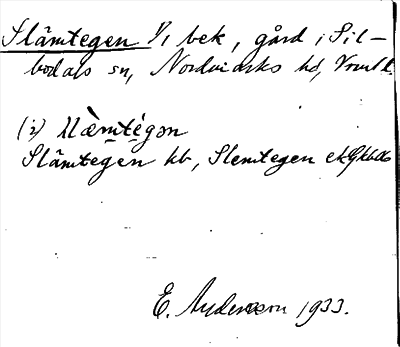 Slämtegen 1/1 bek, gård i Sil-
bodals sn, Nordmarks hd, Vrml.
(i) slæ̀mtẹ́gon
Slämtegen kb, Slemtegen ek
E. Andersson 1933.